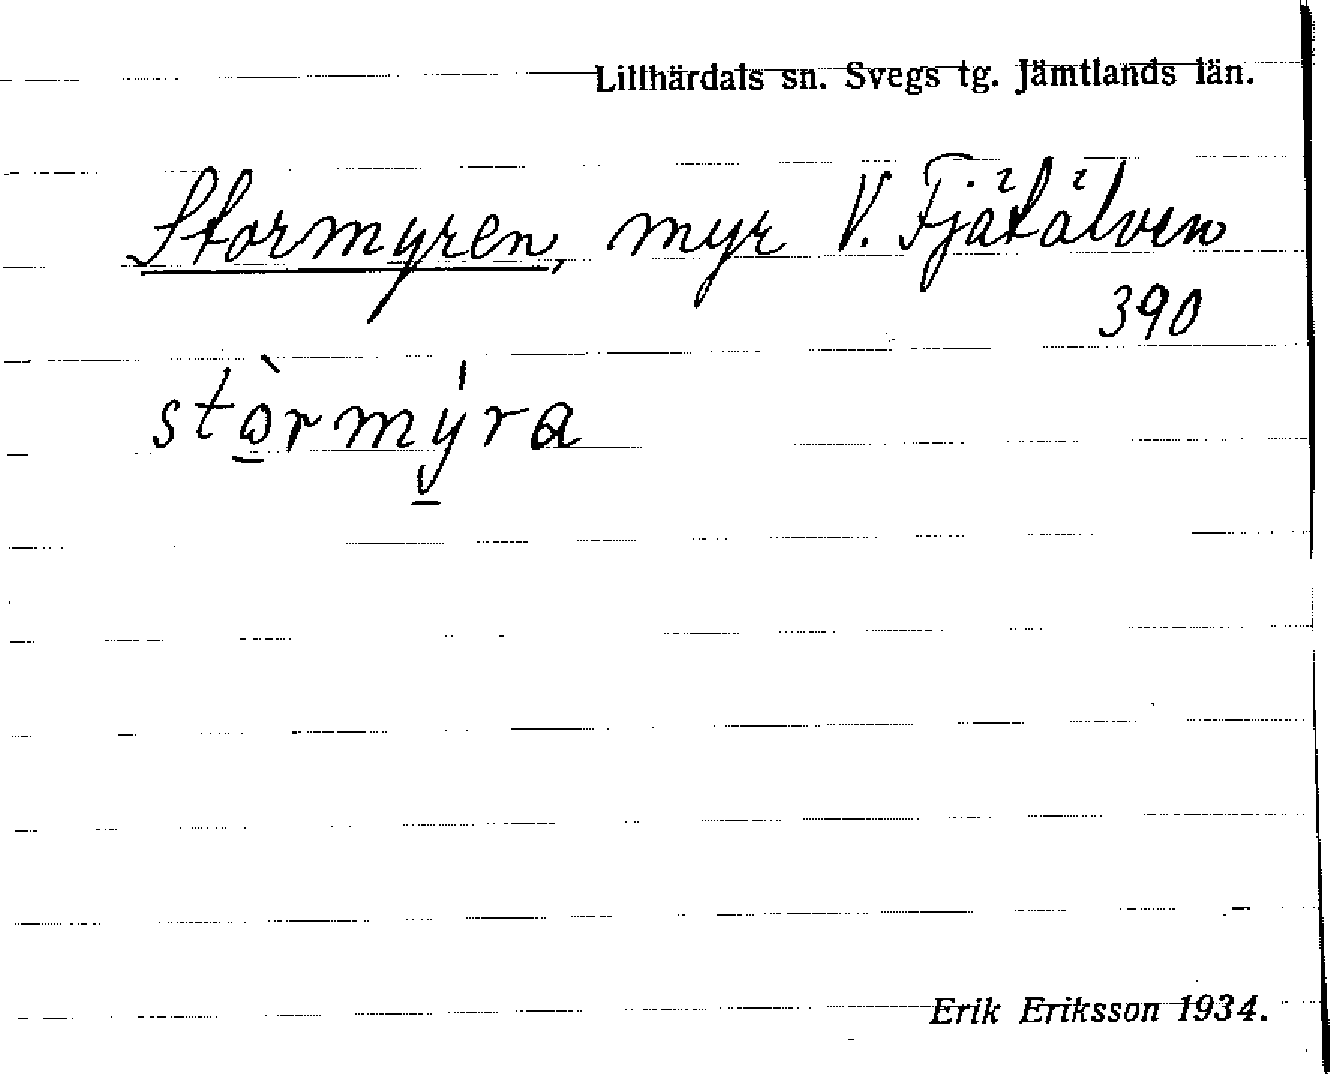 Lillhärdals sn. Svegs tg. Jämtlands län.
Stormyren, myr V. Fjätälven
390
stòrmýra
Erik Eriksson 1934.